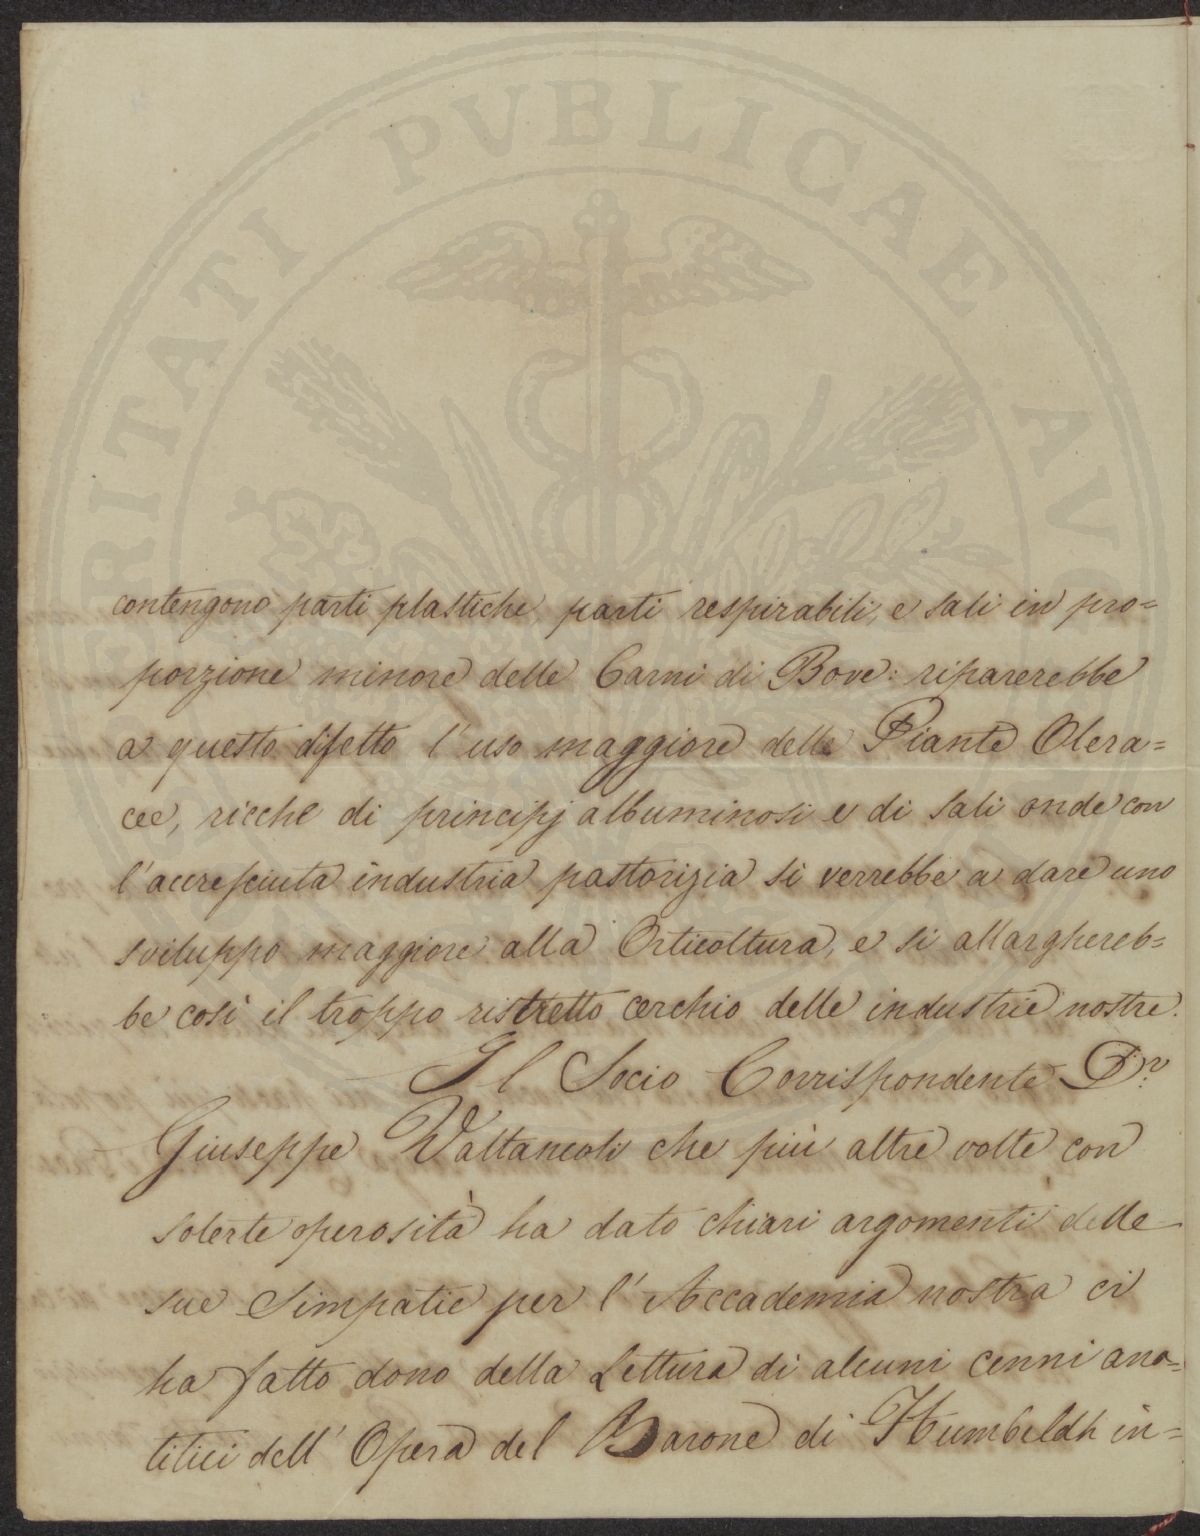 PROSPERITATI PVBLICAE AVGENDAE
contengono parti plastiche, parti respirabili, e sali in pro=
porzione minore delle Carni di Bove: riparerebbe
a questo difetto l'uso maggiore delle Piante Olera=
cee, ricche di principj albuminosi e di sali onde con
l'accresciuta industria pastorizia si verrebbe a dare uno
sviluppo maggiore alla Orticoltura, e si allarghereb=
be così il troppo ristretto cerchio delle industrie nostre.
Il Socio Corrispondente Dr.
Giuseppe Valtancoli che più altre volte con
solerte operosità ha dato chiari argomenti delle
sue Simpatie per l'Accademia nostra ci
ha fatto dono della Lettura di alcuni cenni ana=
litici dell'Opera del Barone di Humboldh in=